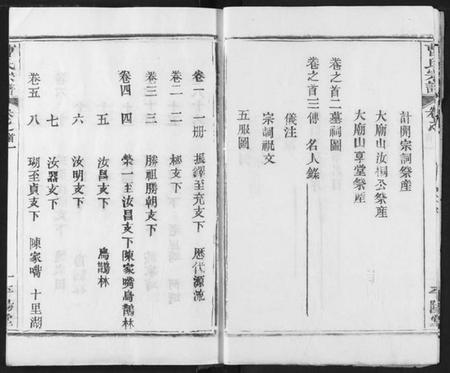 計開宗祠祭產
大廟山汝楫公祭產
大廟山享堂祭產
卷之首二墓祠圖
卷之首三傳 名人錄
儀注
宗祠祝文
五服圖
卷一 一册 振鐸至充支下 歷代源流
卷二 二 支下
卷三 三 勝祖勝朝支下
卷四 四 榮一至汝昌支下陳家嘴烏鵲林
五 汝昌支下 烏鵲林
六 汝明支下
七 汝器支下
卷五 八 瑚至貞支下 陳家嘴 十里湖